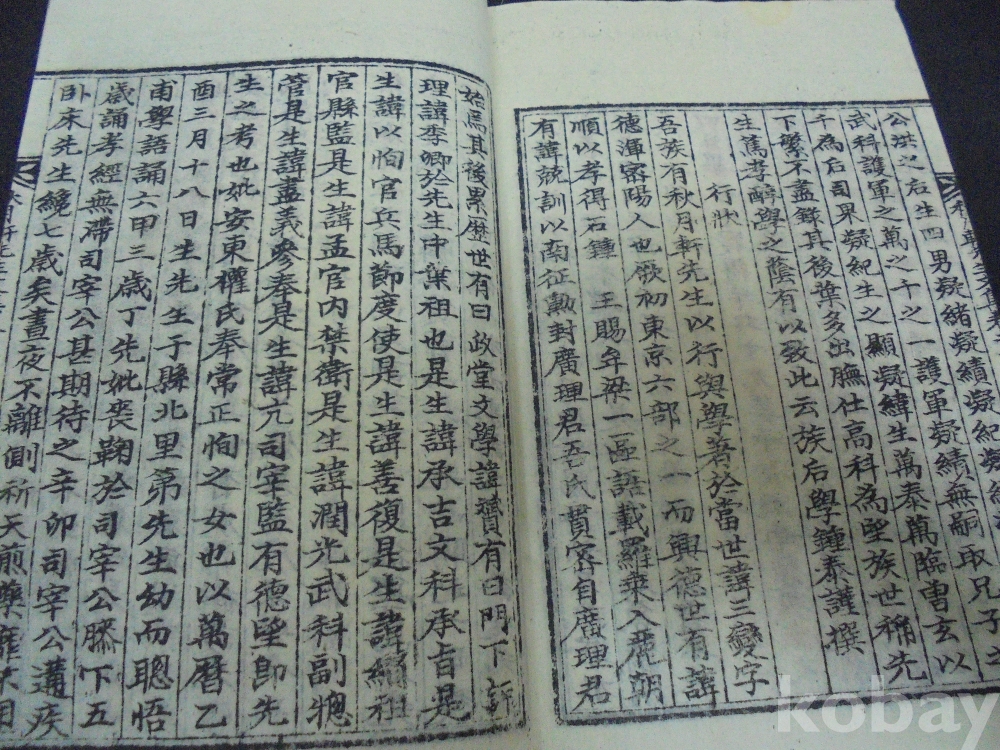 公洪之后生四男疑緒疑績疑紀疑
武科護軍之萬之千之一護軍疑績無嗣取兄子
千為后司果疑紀生之顯疑緯生萬泰萬臨曺玄以
下繁不盡錄其後葉多出膴仕高科為望族世稱先
生篤孝醇學之蔭有以致此云族后學鍾泰謹撰
行狀
吾族有秋月軒先生以行與學著於當世諱三變字
德渾密陽人也厥初東京六部之一而興德世有諱
順以孝得石鍾 王賜牟梁一區語載羅乘入麗朝
有諱兢訓以南征勲封廣理君吾氏貫密自廣理君
始焉其後累歷世有曰政堂文學諱贇有曰門下
理諱李卿於先生中葉祖也是生諱承吉文科承旨是
生諱以恂官兵馬節度使是生諱善復是生諱繝祖
官縣監是生諱孟官内禁衛是生諱潤光武科副摠
管是生諱盡義參奉是生諱亢司宰監有德望即先
生之考也妣安東權氏奉常正恂之女也以萬曆乙
酉三月十八日生先生于縣北里第先生幼而聰悟
甫學語誦六甲三歲丁先妣喪鞠於司宰公膝下五
歲誦孝經無滯司宰公甚期待之辛卯司宰公遘疾
卧床先生纔七歲矣晝夜不離側祈天煎藥靡不
kobay